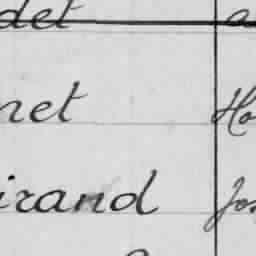 det a
net Ho
irand Jos